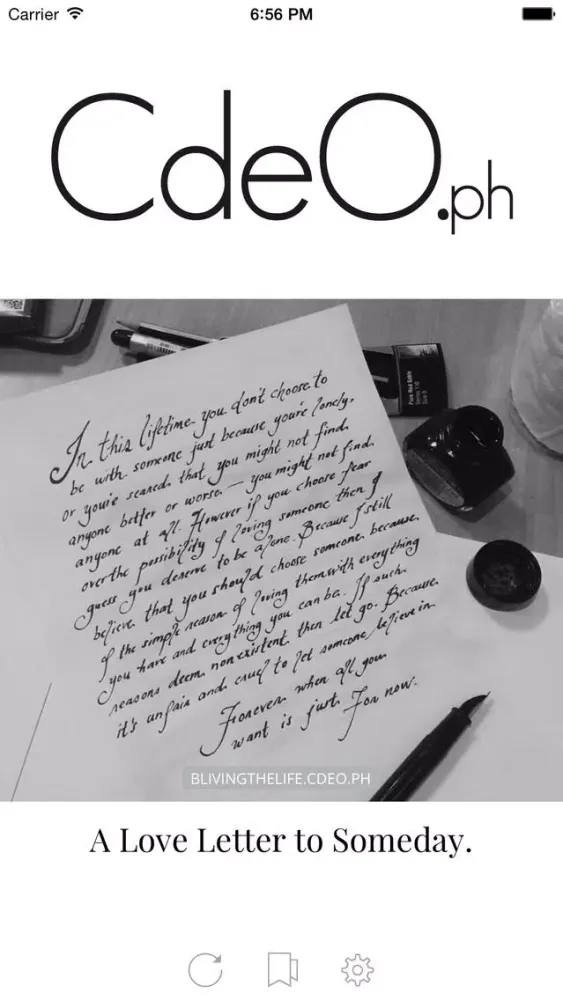 Carrier 6:56 PM
CdeO.ph
In this lifetime you don't choose to
be with someone just because you're lonely,
or you're scared that you might not find
anyone better or worse — you might not find
anyone at all. However if you choose fear
over the possibility of loving someone then I
guess you deserve to be alone. Because I still
believe that you should choose someone because
of the simple reason of loving them with everything
you have and everything you can be. If such
reasons deem nonexistent then let go. Because
it's unfair and cruel to let someone believe in
Forever when all you
want is just For now.
BLIVINGTHELIFE.CDEO.PH
A Love Letter to Someday.